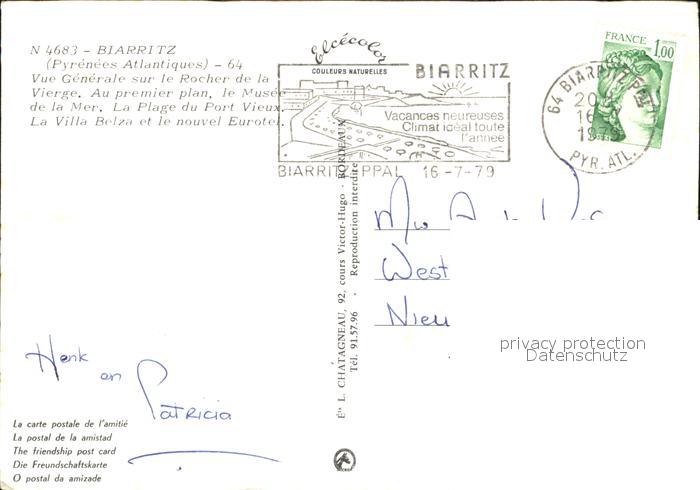 N 4683 - BIARRITZ
(Pyrénées Atlantiques) - 64
Vue Générale sur le Rocher de la
Vierge. Au premier plan, le Musée
de la Mer. La Plage du Port Vieux.
La Villa Belza et le nouvel Eurotel.
Elcécolor
COULEURS NATURELLES
BIARRITZ
Vacances heureuses
Climat idéal toute
l'année
BIARRITZ PPAL 16-7-79
64 BIARRITZ PPAL
16
1979
PYR. ATL.
FRANCE
1,00
Éts L. CHATAGNEAU, 92, cours Victor-Hugo - BORDEAUX
Tél. 91.57.96 . Reproduction interdite
West
Nieu
privacy protection
Datenschutz
Henk
en
Patricia
La carte postale de l'amitié
La postal de la amistad
The friendship post card
Die Freundschaftskarte
O postal da amizade